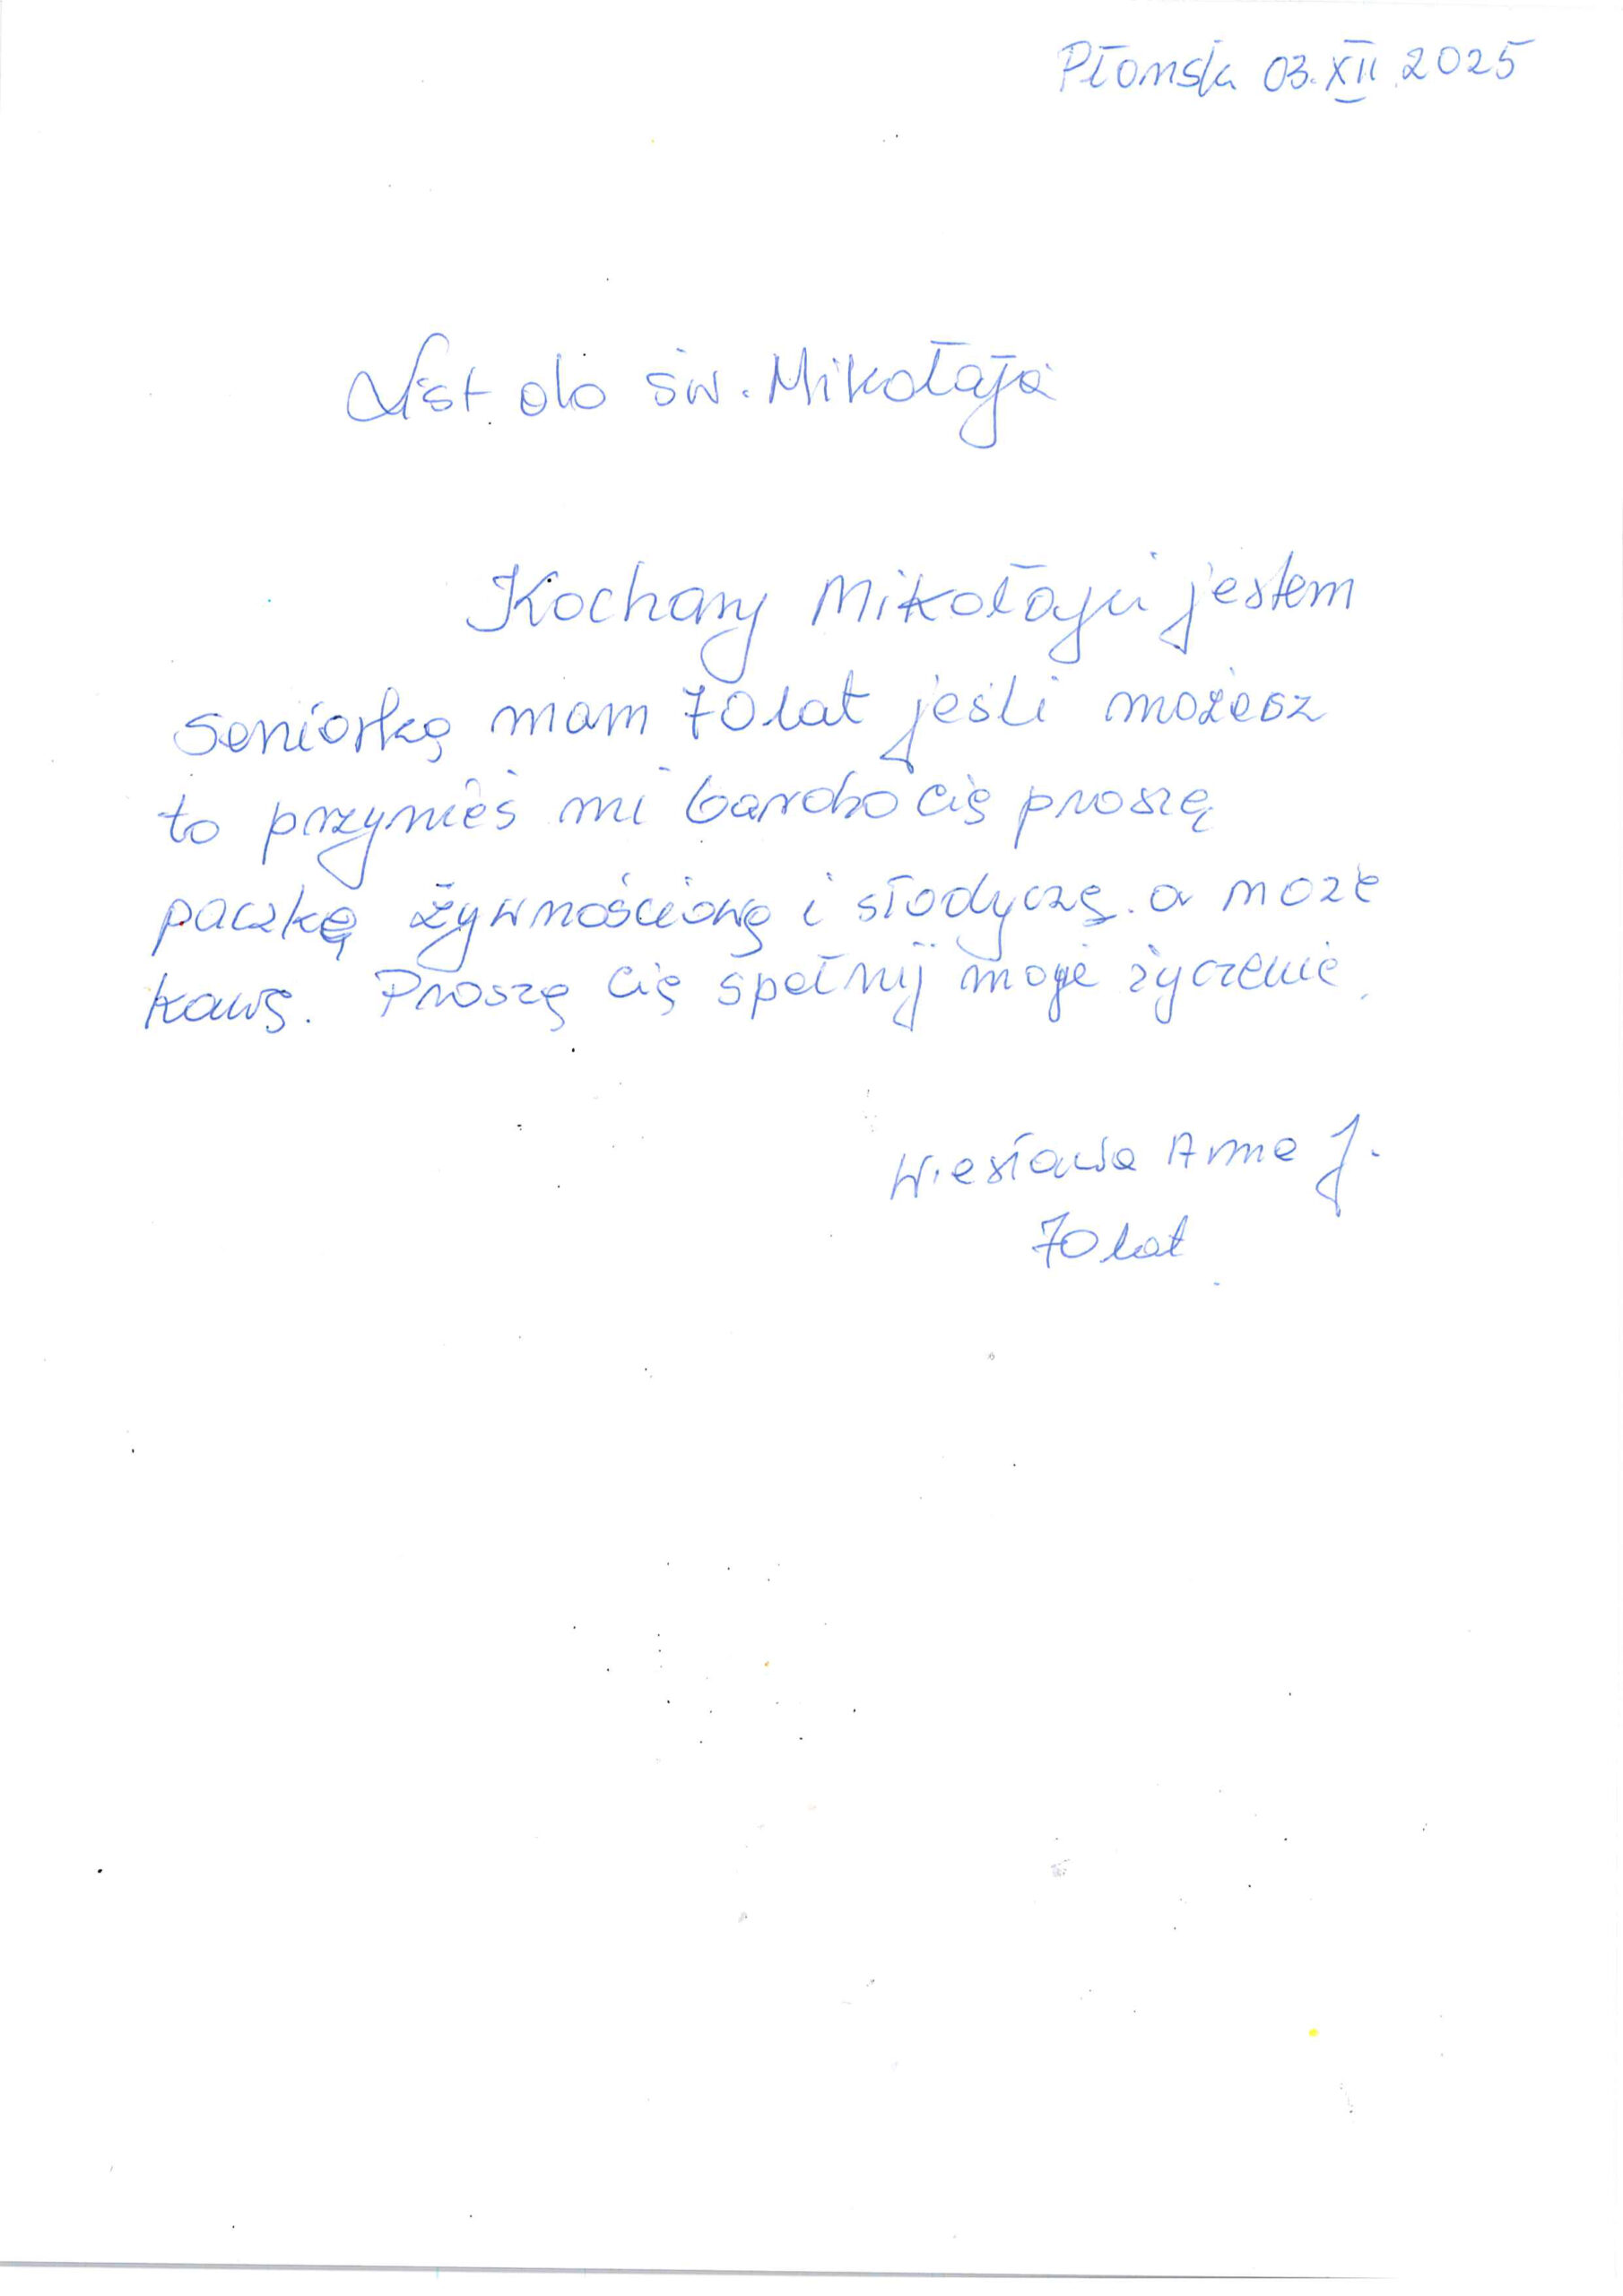 Płońsk 03.XII.2025
List do św. Mikołaja
Kochany Mikołaju jestem
seniorką mam 70 lat jeśli możesz
to przynieś mi bardzo cię proszę
paczkę żywnościową i słodyczę. a może
kawę. Proszę cię spełnij moje życzenie.
Wiesława Anna J.
70 lat